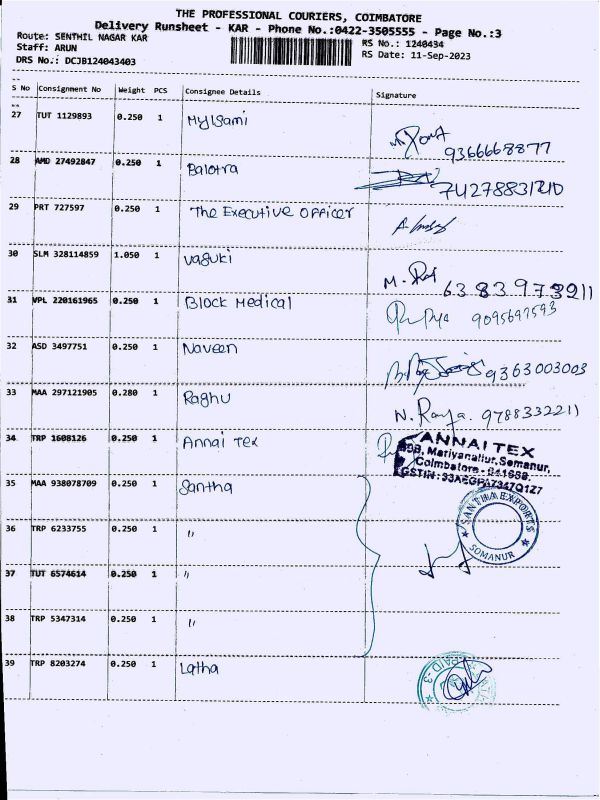 THE PROFESSIONAL COURIERS, COIMBATORE
Delivery Runsheet - KAR - Phone No.:0422-3505555 - Page No.:3
Route: SENTHIL NAGAR KAR
RS No.: 1240434
Staff: ARUN
RS Date: 11-Sep-2023
DRS No.: DCJB124043403
S No Consignment No Weight PCS Consignee Details Signature
27 TUT 1129893 0.250 1 Mylsami
9366668877
28 AMD 27492847 0.250 1 Balotra
29 PRT 727597 0.250 1 The Executive Officer
30 SLM 328114859 1.050 1 vasuki
M. 6383973211
31 VPL 220161965 0.250 1 Block Medical
9095697593
32 ASD 3497751 0.250 1 Naveen
9363003003
33 MAA 297121905 0.280 1 Raghu
N. Ramya. 9788332211
34 TRP 1608126 0.250 1 Annai Tex
ANNAI TEX
Mariyanallur, Somanur,
Coimbatore - 641668.
GSTIN: 33AEGPA7347Q1Z7
35 MAA 938078709 0.250 1 Santha
SANTHA EXPORTS
SOMANUR
36 TRP 6233755 0.250 1 "
37 TUT 6574614 0.250 1 "
38 TRP 5347314 0.250 1 "
39 TRP 8203274 0.250 1 Latha